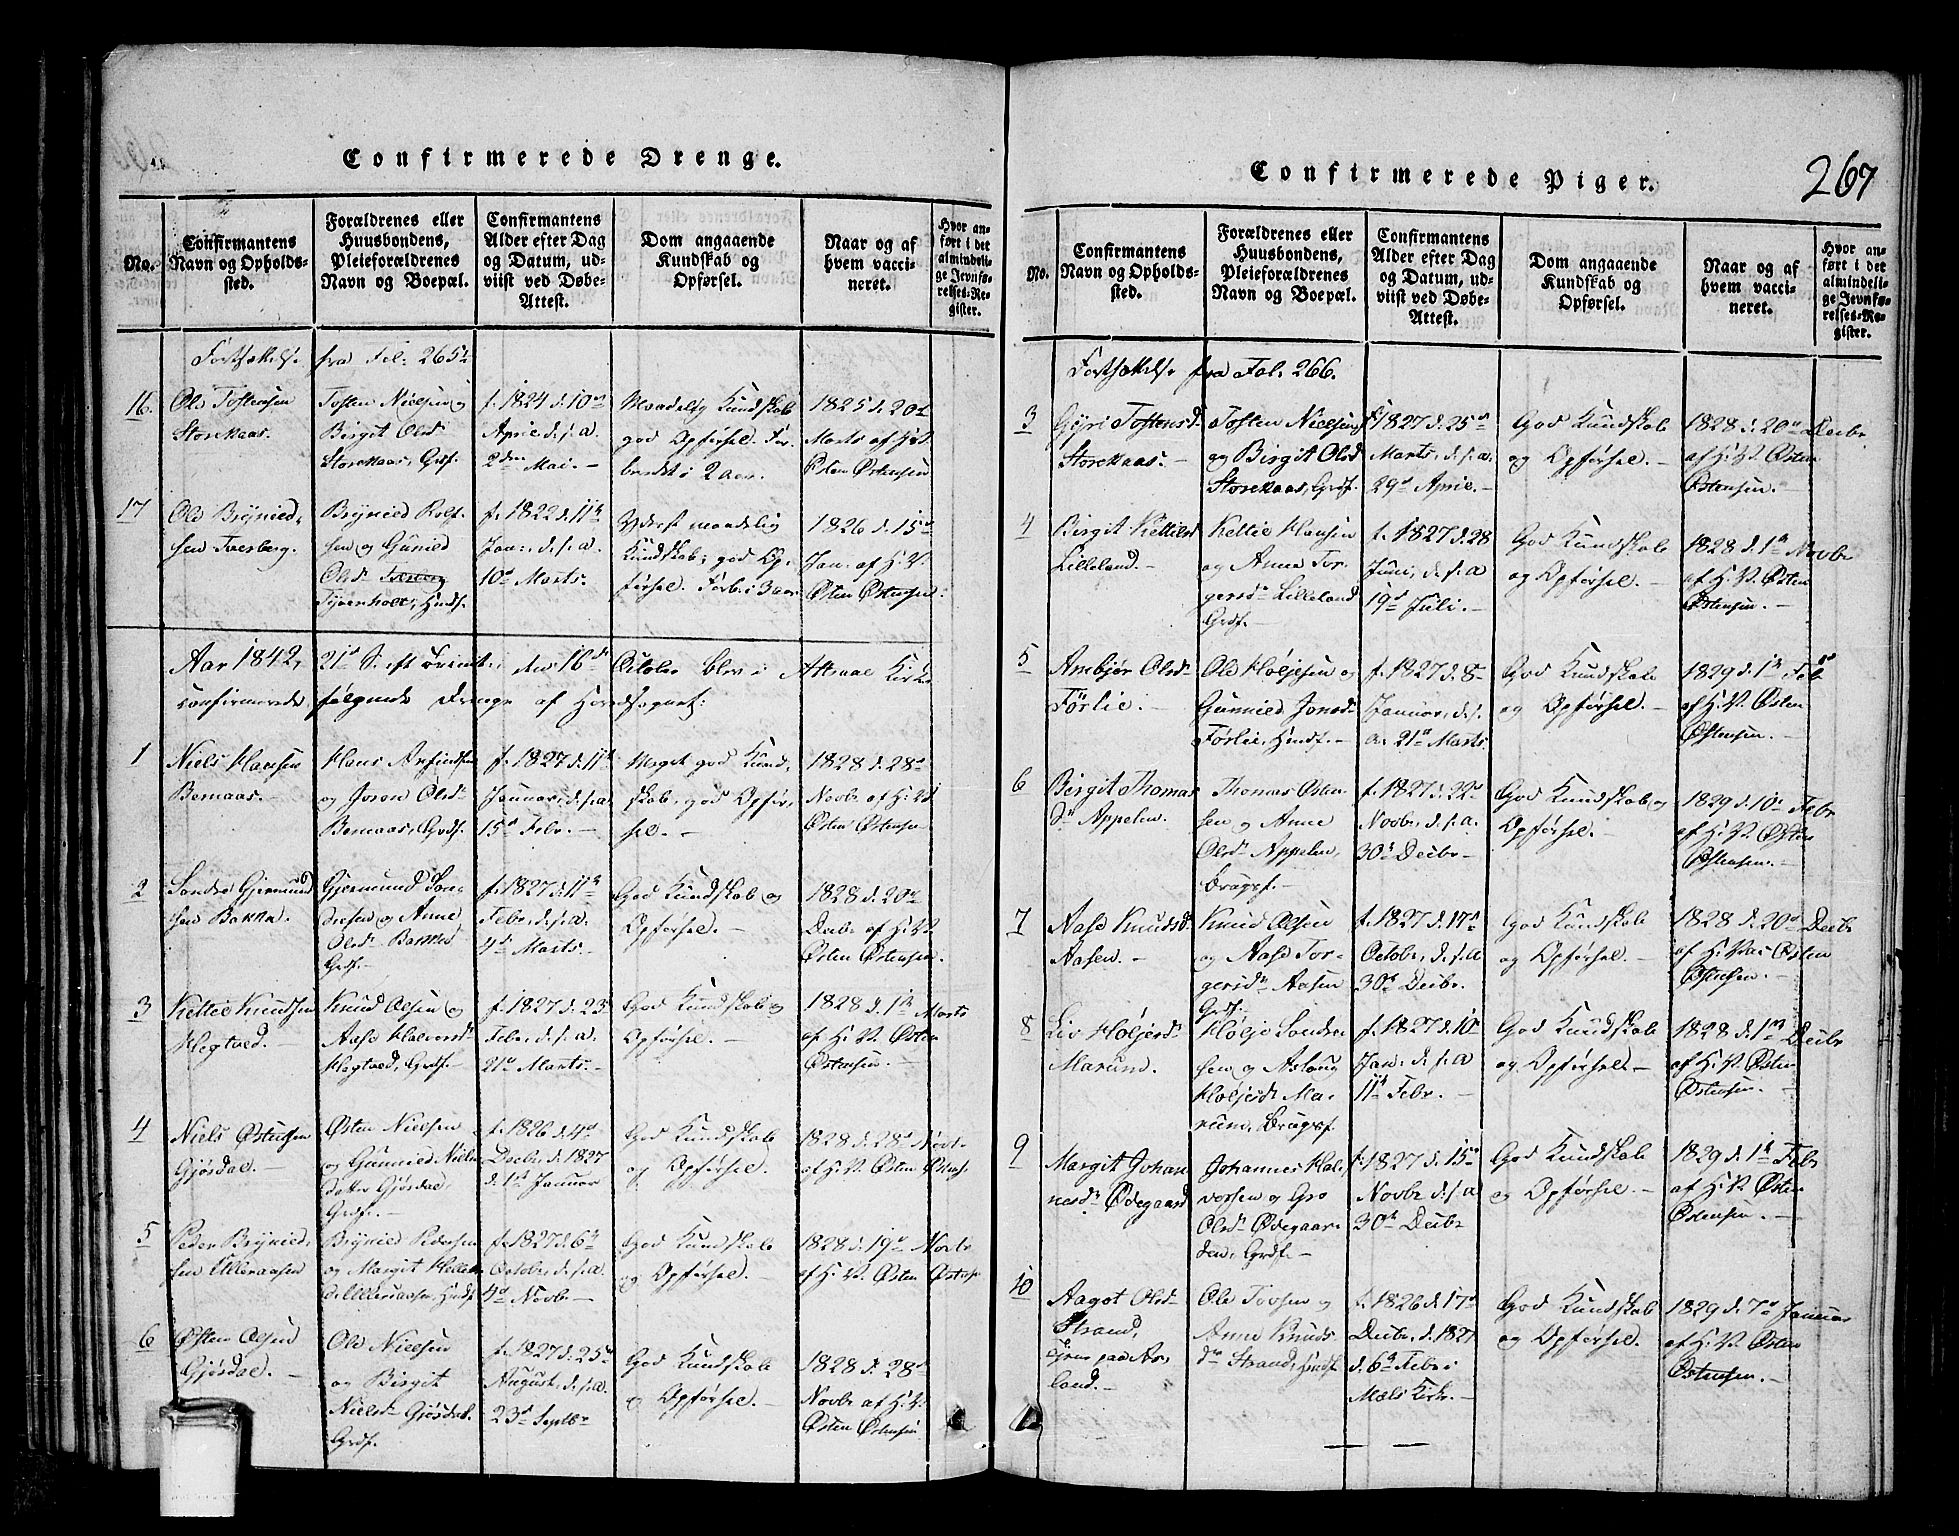 Confirmerede Drenge.
No.
Confirmantens
Navn og Opholds-
sted.
Forældrenes eller
Huusbondens,
Pleieforældrenes
Navn og Boepæl.
Confirmantens
Alder efter Dag
og Datum, ud-
viist ved Døbe-
Attest.
Dom angaaende
Kundskab og
Opførsel.
Naar og af
hvem vacci-
neret.
Hvor an-
ført i det
almindeli-
ge Jevnfø-
relses-Re-
gister.
Fortsættelse fra Fol: 265
16.
Ole Tostensen
Storekaas.
Tosten Nielsen og
Birgit Olsd
Storekaas, Grdf.
f. 1824 d. 10
April d. s. a.
2den Mai. –
Maadelig Kundskab
god Opførsel. For
beredt i 2 aar.
1825 d. 20
Marts af H. V.
Østen Østensen
17
Ole Brynild-
sen Tverberg.
Brynild Rolf
sen og Gunild
Olsd
Tyvenholt, Hudf.
f. 1822 d. 11
Jan: d. s. a.
10 Marts.
Yderst maadelig
Kundskab, god Op-
førsel. Forb. i 3 aar
1826 d. 15
Jan. af H. V.
Østen Østensen.
Aar 1842, 21 S. eft Trinit. den 16 October blev i Attraae Kirke
confirmerede følgende Drenge af Hovedsognet:
1
Niels Hansen
Bemaas. –
Hans Arfindsen
og Joron Olsd
Bemaas, Grdf.
f. 1827 d. 11
Januar, d. s. a.
15 Febr. –
Meget god Kund-
skab, god Opfør-
sel. –
1828 d. 28
Novbr af H. V.
Østen Østensen
2
Sondre Gjermund
sen Bakka.
Gjermund Son-
dresen og Anne
Olsd
Grdf. –
f. 1827 d. 11
Febr. d. s. a.
4 Marts –
God Kundskab og
Opførsel. –
1828 d. 20
Decbr af H. V.
Østen Østensen.
3
Kettil Knudsen
Hegtved.
Knud Olsen og
Aase Halvorsd
Hegtved, Grdf. –
f. 1827 d. 23
Febr. d. s. a.
21 Marts. –
God Kundskab og
Opførsel. –
1828 d. 1 Marts
af H. V. Østen
Østensen.
4
Niels Østensen
Gjøsdal. –
Østen Nielsen
og Gunild Niels
datter Gjøsdal,
Grdf. –
f. 1826 d. 4
Decbr, d. 1827
d. 1 Januar
God Kundskab
og Opførsel.
1828 d. 28 Novbr
af H. V. Østen Østens
5
Peder Brynild-
sen Ulleraasen
Brynild Pedersen
og Margit
Ulleraasen, Hudf
f. 1827 d. 6
Octobr, d. s. a.
4 Novbr –
God Kundskab
og Opførsel. –
1828 d. 19 Novbr
af H. V. Østen Østens
6
Østen Olsen
Gjøsdal. –
Ole Nielsen
og Birgit
Nielsd Gjøsdal.
Grdf.
f. 1827 d. 25
August, d. s. a.
23 Septbr
God Kundskab
og Opførsel. –
1828 d. 28
Novbr af H. V.
Østen Østensen
Confirmerede Piger.
267
No.
Confirmantens
Navn og Opholds-
sted.
Forældrenes eller
Huusbondens,
Pleieforældrenes
Navn og Boepæl.
Confirmantens
Alder efter Dag
og Datum, ud-
viist ved Døbe-
Attest.
Dom angaaende
Kundskab og
Opførsel.
Naar og af
hvem vacci-
neret.
Hvor an-
ført i det
almindeli-
ge Jevnfø-
relses-Re-
gister.
Fortsættelse fra Fol. 266.
3
Gyri Tostensd
Storekaas. –
Tosten Nielsen
og Birgit Olsd
Storekaas, Grdf.
f. 1827 d. 25
Marts, d. s. a.
29 April. –
God Kundskab
og Opførsel. –
1828 d. 20 Decbr
af H. V. Østen
Østensen. –
4
Birgit Kettilsd
Lilleland. –
Kettil Hansen
og Anne Tor-
gersd Lilleland
Grdf. –
f. 1827 d. 28
Juni, d. s. a
19 Juli. –
God Kundskab
og Opførsel. –
1828 d. 1 Novbr
af H. V. Østen
Østensen. –
5
Anbjør Olsd
Førlie. –
Ole Høljesen og
Gunnild Jonsd
Førlie, Hudf. –
f. 1827 d. 8
Januar, d. s.
a. 21 Marts
God Kundskab
og Opførsel. –
1829 d. 1 Feb
af H. V. Østen
Østensen. –
6
Birgit Thomas
d Appelen.
Thomas Østen
sen og Anne
Olsd Appelen,
Brugsf. –
f. 1827 d. 22
Novbr, d. s. a.
30 Decbr –
God Kundskab og
Opførsel. –
1829 d. 10 Febr
af H. V. Østen
Østensen. –
7
Aase Knudsd
Aasen. –
Knud Olsen
og Aase Tor-
gersd Aasen
Grdf.
f. 1827 d. 17
Octobr, d. s. a
30 Decbr.
God Kundskab
og Opførsel. –
1828 d. 20 Decbr
af H. V. Østen
Østensen. –
8
Liv Høljesd
Marum. –
Hølje Sondre
sen og Aslaug
Høljesd Ma-
rum, Brugsf.
f. 1827 d. 10
Jan. d. s. a
11 Febr. –
God Kundskab
og Opførsel. –
1828 d. 1 Decbr
af H. V. Østen
Østensen. –
9
Margit Johan
nesd Ødegaard
Johannes Hal-
vorsen og Gro
Olsd Ødegaar-
den, Grdf. –
f. 1827 d. 15
Novbr d. s. a
30 Decbr
God Kundskab
og Opførsel. –
1829 d. 1 Febr
af H. V. Østen
Østensen. –
10
Aagot Olsd
Strand,
land. –
Ole Tovsen og
Anne Knuds
d Strand, Hudf.
f. 1826 d. 17
Decbr, d. 1827
d. 6 Febr i
Mæls Kirke. –
God Kundskab
og Opførsel. –
1829 d. 7 Januar
af H. V. Østen
Østensen. –